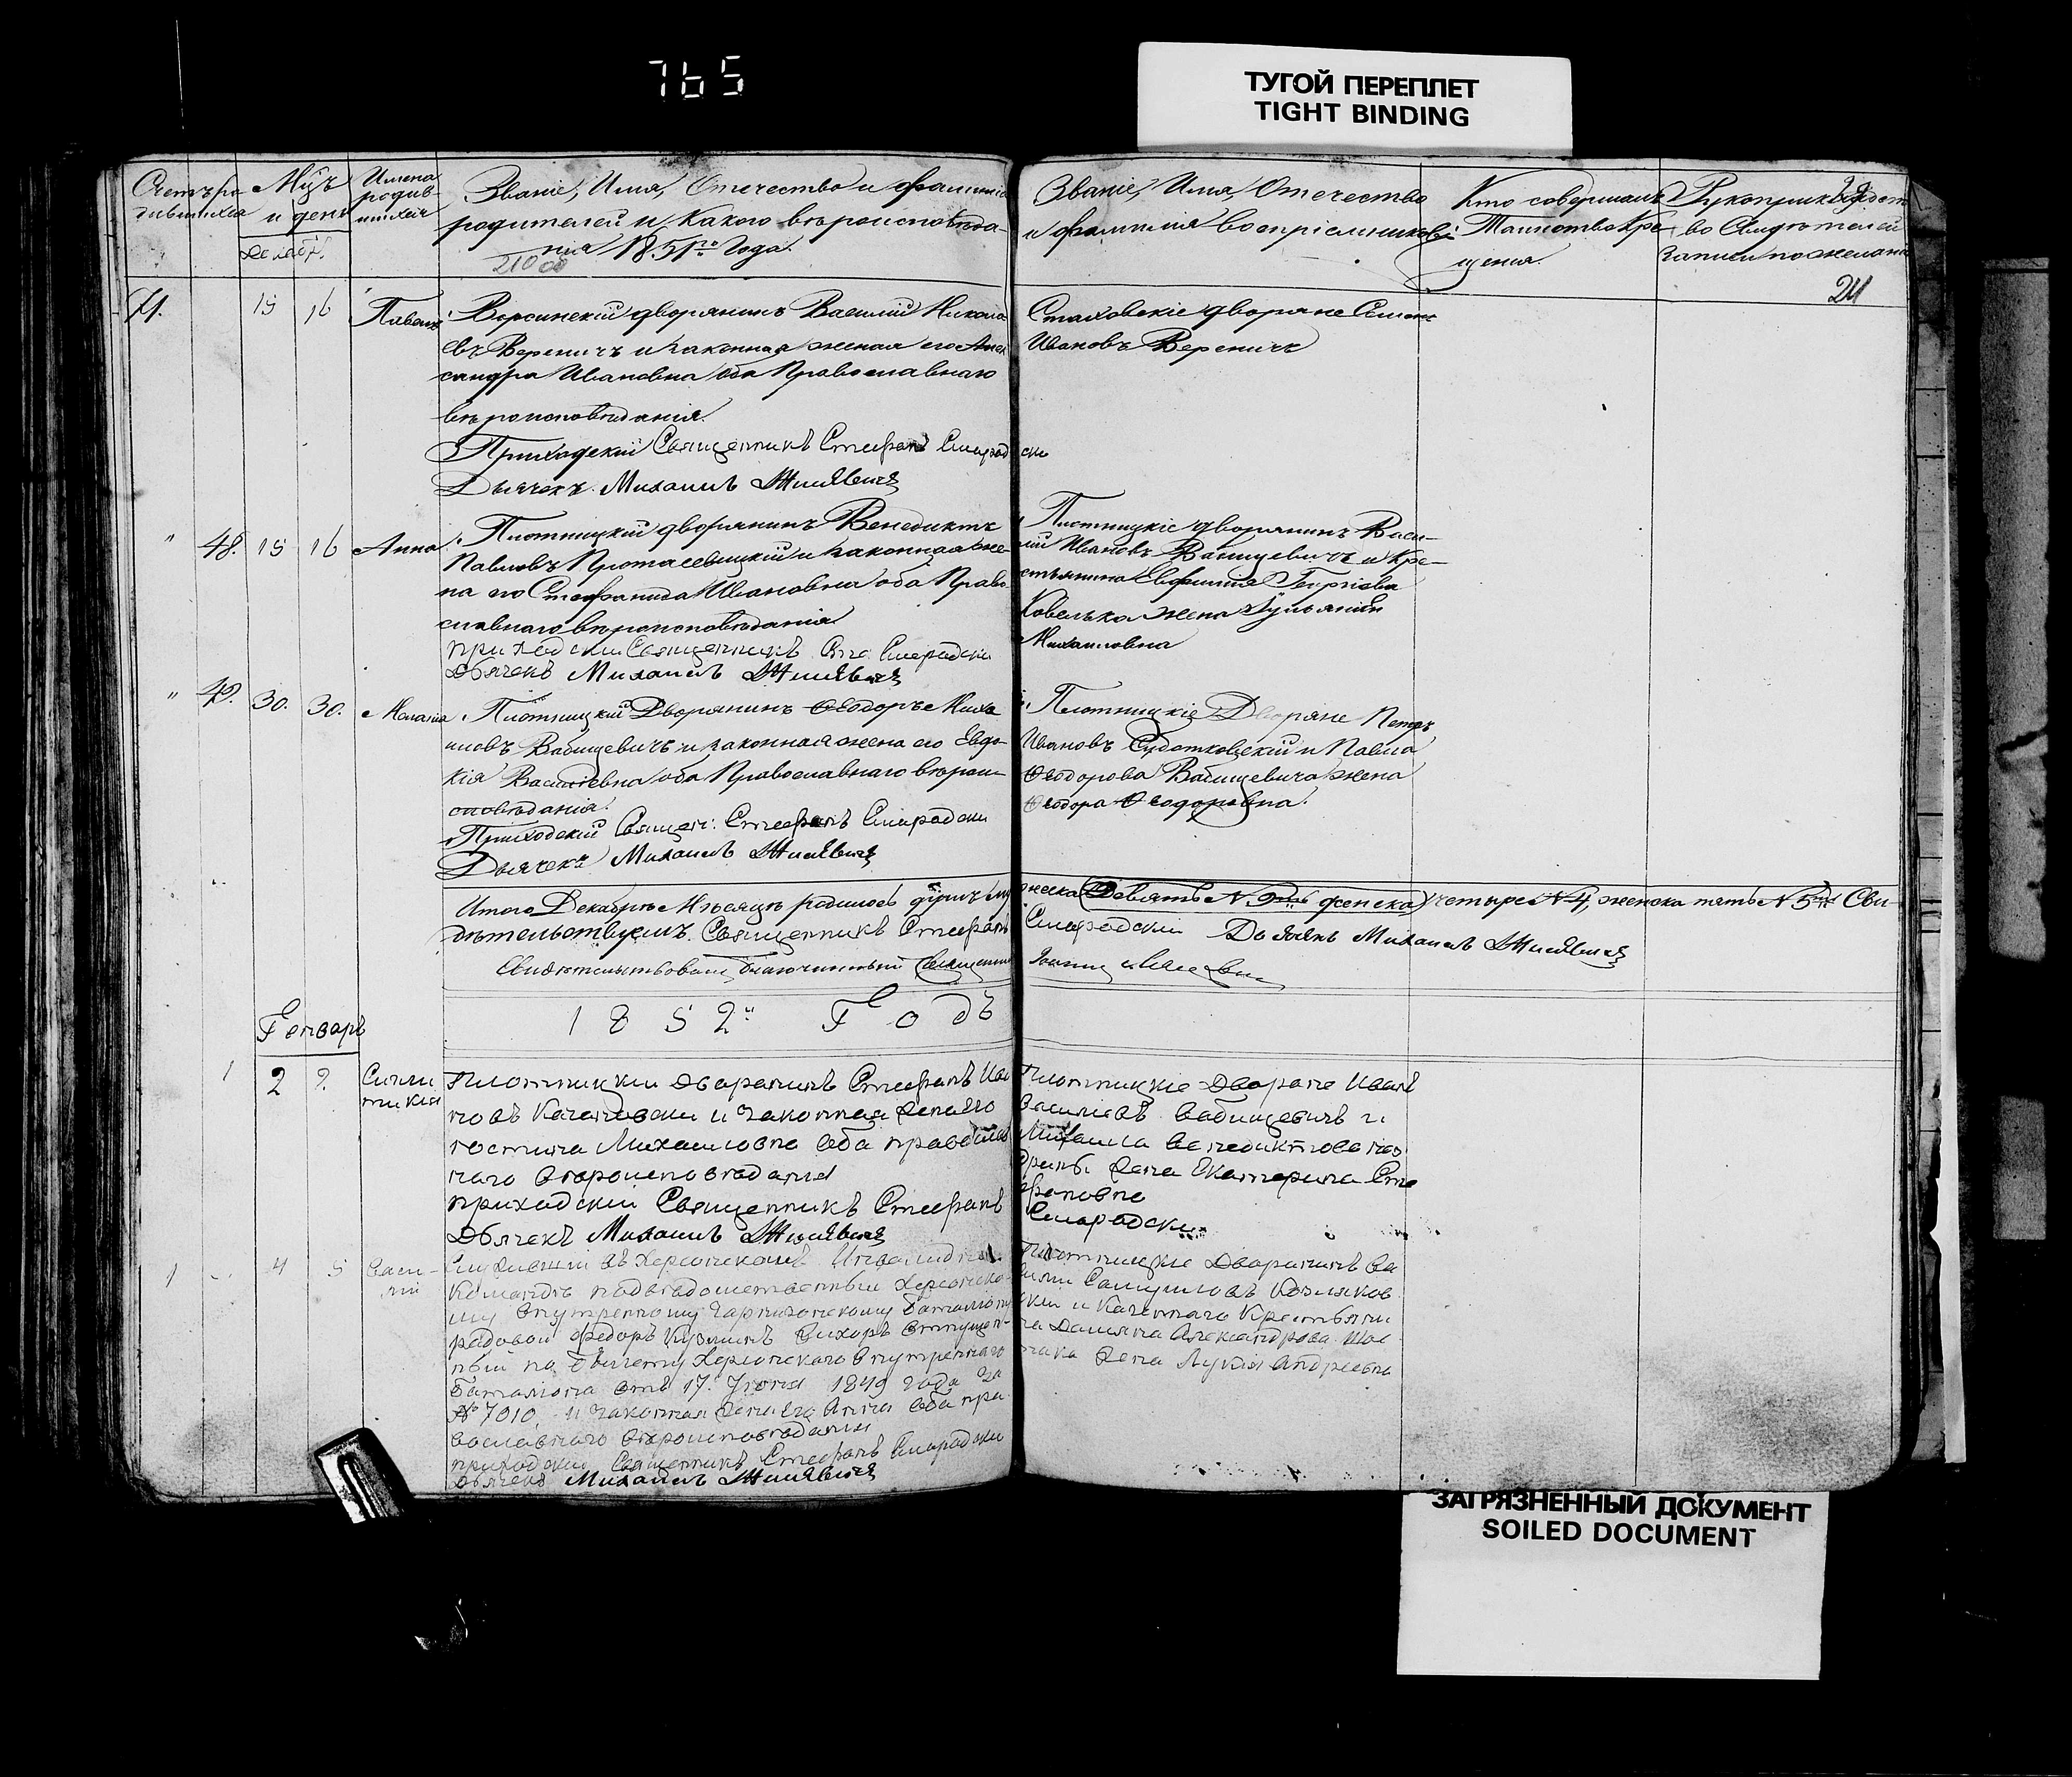 765
ТУГОЙ ПЕРЕПЛЕТ
TIGHT BINDING
Счетъ ро
дившихся
Мцъ
и день
Декабр.
Имена
родив-
шихся
Званіе, Имя, Отечество и фамилія
родителей и какого вѣроисповѣда-
нія 1851го Года.
Званіе, Имя, Отечество
и фамилія воспріемниковъ
Кто совершалъ
Таинство Кре-
щенія.
Рукоприкладст
во Свидѣтелей
Записи по желан
24
15 16 Павелъ
дворянинъ Василій Никола
евъ Вереничъ и законная жена его Алек
сандра Ивановна оба Православнаго
вѣроисповѣданія.
Приходскій Священникъ Стефанъ Смародски
Дьячекъ Михаилъ
Стаховскіе дворяне Семенъ
Ивановъ Вереничъ
" 48. 15 16 Анна
Плотницкій дворянинъ Венедиктъ
Павловъ Протасевицкій и законная же-
на его Стефанида Ивановна оба Право
славнаго вѣроисповѣданія
приходскии Священникъ Сте. Смародски
Дьячекъ Михаилъ
Плотницкіе дворянинъ Васи-
лій Ивановъ Вабищевичъ и Кре-
стьянина Евфимія Георгіева
Ковалька жена Іуліанія
Михаиловна
" 49. 30. 30. Меланія
Плотницкій Дворянинъ Ѳеодоръ Миха
иловъ Вабищевичъ и законная жена его Евдо-
кія Василіевна оба Православнаго вѣрои-
сповѣданія.
Приходскій Священ: Стефанъ Смародски
Дьячекъ Михаилъ
Плотницкіе Дворяне Петръ
Ивановъ и Павла
Ѳеодорова Вабищевича жена
Ѳеодора Ѳеодоровна.
Итого Декабрѣ Мѣсяцѣ родилось душъ муж
жеска Девять N 9 женска четыре N 4, женска пять N 5 Сви-
дѣтельствуемъ. Священникъ Стефанъ
Смародскій Дьячекъ Михаилъ
Свидѣтельствовалъ благочинный Священник
1852й Годъ
Генварь
1 2 2.
Плотницкии дворянинъ Стефанъ Ива
новъ и законная жена его
Михаиловна оба правосла
наго вѣроисповѣданія
приходскіи Священникъ Стефанъ
Смародски
Дьячекъ Михаилъ
Плотницкіе дворяне Иванъ
Василіевъ Вабищевичъ и
Михаила Венедиктова
жена Екатерина Сте
фановна
1 4 5 Васи-
лій
Служившіи въ Херсонскомъ Инвалидн
Командѣ подвѣдомственныи Херсонско
му внутренному Гарнизонскому Баталіону
рядовои Федоръ Кузминъ отпущен-
ныи по билету Херсонскаго внутренняго
баталіона отъ 17. Іюня 1849 года за
№ 7010. и законная жена его Анна оба пра
вославнаго вѣроисповѣданія
приходскіи Священникъ Стефанъ Смародски
Дьячекъ Михаилъ
Плотницкіе дворянинъ Ва
силіи Самуиловъ
и Казеннаго Крестьяни
на Даміяна Александрова
жена Лукія Андреевна
ЗАГРЯЗНЕННЫЙ ДОКУМЕНТ
SOILED DOCUMENT